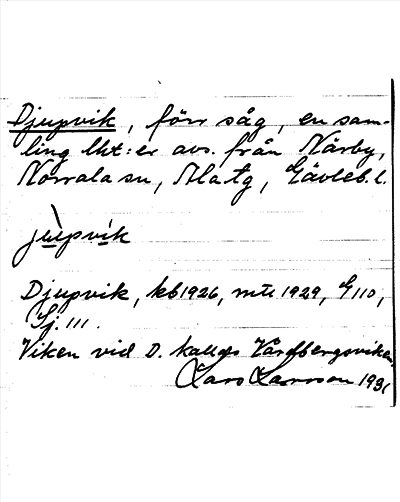 Djupvik, förr såg, en sam-
ling lht:er avs. från Närby,
Norrala sn, Ala tg, Gävleb. l.
jùpvík
Djupvik, kb 1926, mtl 1929, G 110,
Sj. 111.
Viken vid D. kallas Vårdbergsviken.
Lars Larsson 193